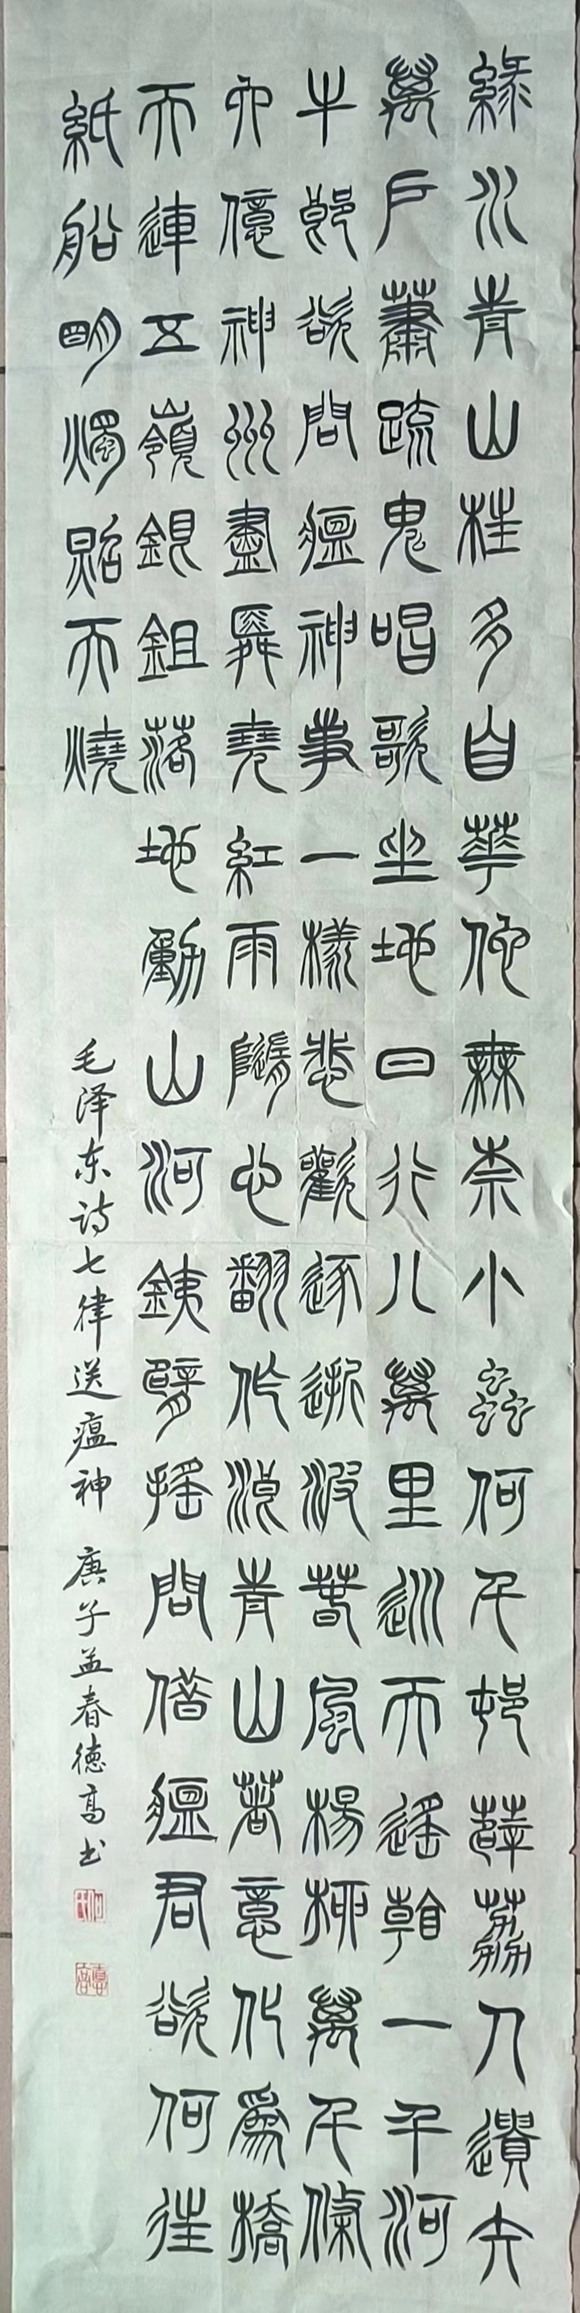 綠水青山枉多自華佗無奈小蟲何千邨薜荔人遺矢
萬戶蕭疏鬼唱歌坐地日行八萬里巡天遙看一千河
牛郎欲問瘟神事一樣悲歡逐逝波春風楊柳萬千條
六億神州盡舜堯紅雨隨心翻作浪青山著意化為橋
天連五嶺銀鉏落地動山河銕臂搖問借瘟君欲何往
紙船明燭照天燒
毛泽东诗七律送瘟神 庚子孟春德高书